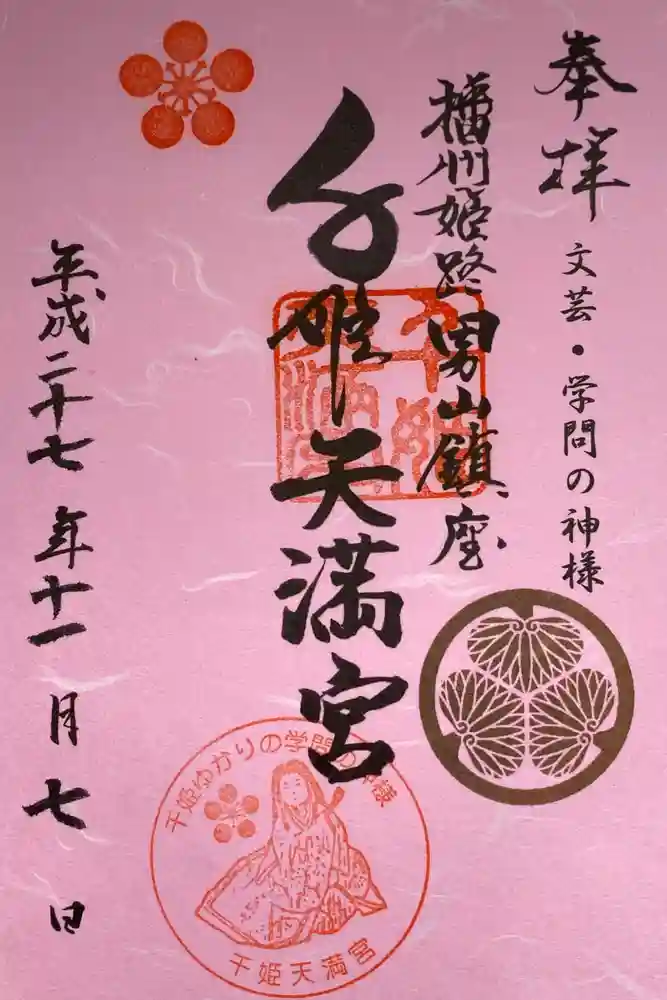 奉拝
文芸・学問の神様
播州姫路男山鎮座
千姫天満宮
平成二十七年十一月七日
千姫ゆかりの学問の神様
千姫天満宮